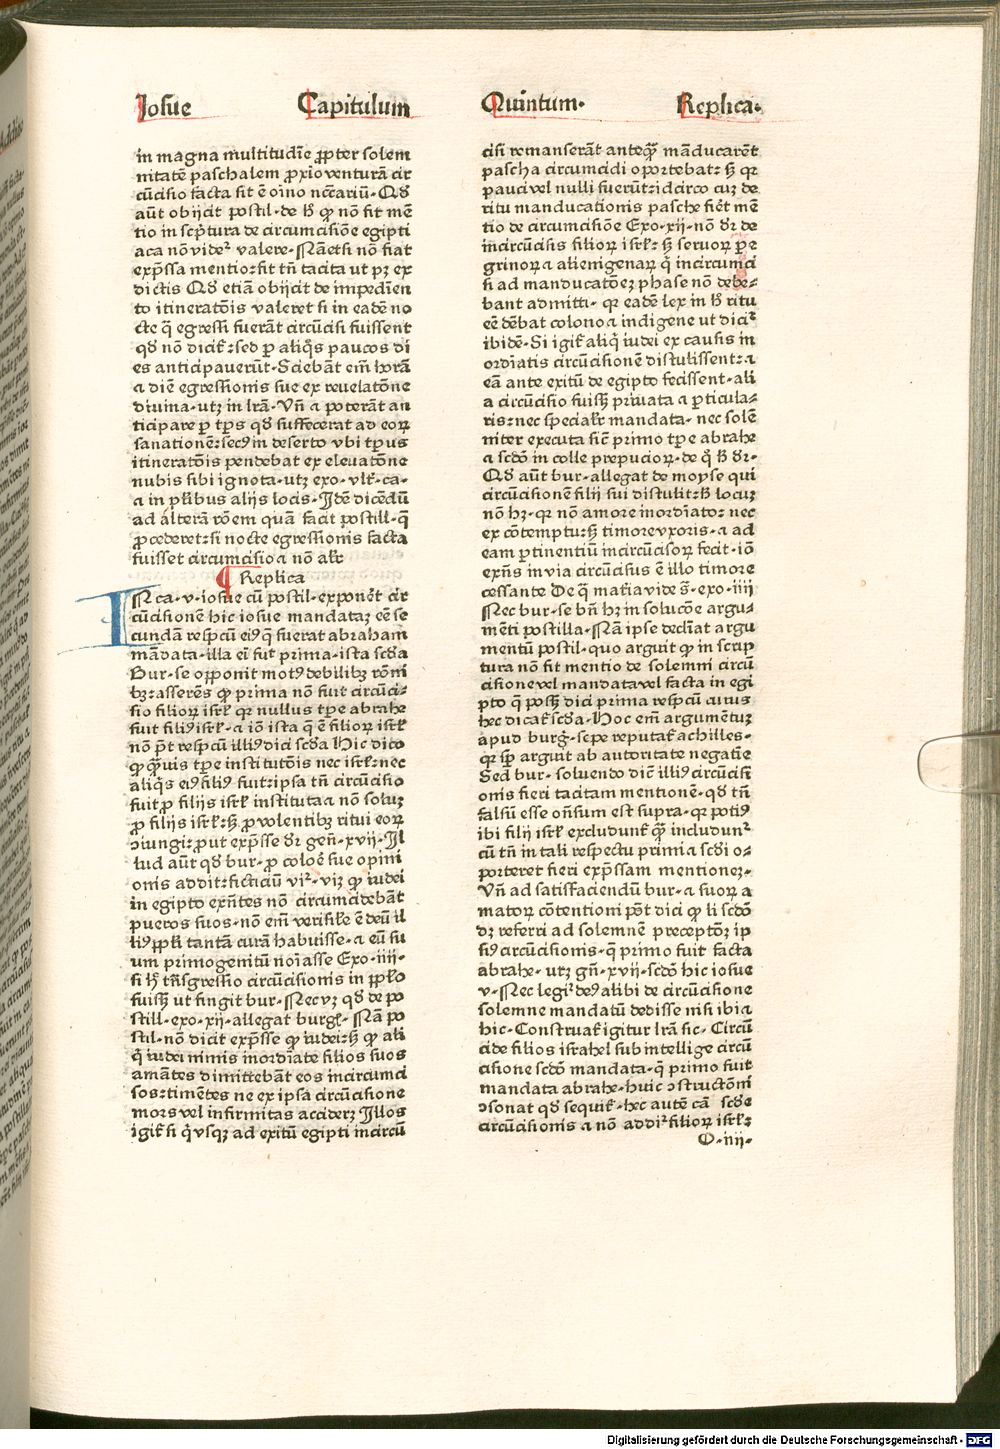 Iosue Capitulum Quintum· Replica·
in magna multitudīe ꝓpter solem
nitatē paschalem ꝓxīo venturā cir
cūcisio facta sit ē oīno necāriū· Qđ
aūt obijcit postil· de h̄ ꝙ nō fit mē
tio in scptura de circumcisiōe egipti
aca nō videt valere· Nā etsi nō fiat
exp̄ssa mentio: fit tn̄ tacita ut pꝫ ex
dictis Qđ etiā obijcit de impediēn
to itineratōis valeret si in eadē no
cte q̄ egressi fuerāt circūcisi fuissent
qđ nō dicit̄: sed ꝑ aliq̄s paucos di
es anticipauerūt· Sciebāt em̄ horā
a diē egressionis sue ex reuelatōne
diuina· utꝫ in lrā· Vn̄ a poterāt an
ticipare ꝑ tp̄s qđ suffecerat ad eoꝝ
sanationē: secꝰ in deserto vbi tp̄us
itineratōis pendebat ex eleuatōne
nubis sibi ignota· utꝫ exo· vlt̄· ca·
a in pl̄ibus alijs locis· Idē dicēdū
ad alterā rōem quā facit postill· q̄
ꝓcederet: si nocte egressionis facta
fuisset circumcisio a nō alr̄
¶ Replica
IN ca· v· iosue cū postil· exponēt̄ cir
cūcisionē hic iosue mandataꝫ cē se
cundā respcū eiꝰ q̄ fuerat abraham
māData· illa ei fut prima· ista scđa
Bur· se opponit motꝰ debilibꝫ rōni
bꝫ: asserēs ꝙ prima nō fuit circūci⸗
sio filioꝝ isrł ꝗr nullus tꝑe abrahe
fuit filiꝰ isrł· a iō ista q̄ ē filioꝝ isrł
nō pt̄ respcū illiꝰ dici scđa Hic dico
ꝙ ꝙ̄uis tꝑe institutōis nec isrł: nec
aliq̄s eiꝰ filiꝰ fuit: ipsa tn̄ circūcisio
fuit ꝓ filijs isrł instituta a nō soluꝫ
ꝓ filijs isrł: sꝫ ꝓ volentibꝫ ritui eoꝝ
ↄiungi: ꝓut exp̄sse dr̄ gen̄· xvij· Il
lud aūt qđ bur· ꝓ coloē sue opini
onis addit: ficticiū vir̄· viꝫ ꝙ iudei
in egipto exn̄tes nō circumcidebāt
pueros suos· nō em̄ verisil̄e ē deū il
liꝰ ppl̄i tantā curā habuisse· a eū su
um primogenitū noīasse Exo· iiij·
si h̄ trn̄sgressio circūcisionis in ppl̄o
fuissꝫ ut fingit bur· Nec vꝫ qđ de po
still· exo· xij· allegat burgł· Nā po
stil· nō dicit exp̄sse ꝙ iudei: sꝫ ꝙ ali
q̄ iudei nimis inordīate filios suos
amātes dimittebāt eos incircumci
sos: timētes ne ex ipsa circūcisione
mors vel infirmitas accideꝫ Illos
igit̄ si q̄ vsqꝫ ad exitū egipti incircū
cisi remanserāt anteq̄ꝫ māducarēt
pascha circumcidi oportebat: sꝫ ꝗr
pauci vel nulli fuerūt: idcirco cuꝫ de
ritu manducationis pasche fiēt mē
tio de circumcisiōne Exo· xij· nō dr̄ de
incircūcisis filioꝝ isrł: sꝫ seruoꝝ ꝑe
grinoꝝ a alienigenaꝝ q̄ incircumci
si ad manducatōeꝫ phase nō debe⸗
bant admitti· ꝗr eadē lex in h̄ ritu
eē dēbat colono a indigene ut dicit̄
ibidē· Si igit̄ aliq̄ iudei ex causis in
ordīatis circūcisionē distulissent: a
eā ante exitū de egipto fecissent· ali
a circūcisio fuissꝫ priuata a ꝑticula⸗
ris: nec specialr̄ mandata· nec solē
niter executa sic̄ primo tꝑe abrahe
a scđo in colle prepucioꝝ· de q̄ h̄ dr̄·
Qđ aūt bur· allegat de moyse qui
circūcisionē filij sui distulit: h̄ locuꝫ
nō hꝫ· ꝗr nō amore inordīato: nec
ex cōtemptu: sꝫ timore vxoris· a ad
eam ꝑtinentiū incircūcisoꝝ fecit· iō
exn̄s in via circūcisus ē illo timore
cessante De q̄ matīa vide s̄· exo· iiij
Nec bur· se bn̄ hꝫ in solucōe argu⸗
mēti postilla· Nā ipse declīat argu
mentū postil· quo arguit ꝙ in scrip
tura nō fit mentio de solemni circū
cisione vel mandata vel facta in egi
pto q̄ possꝫ dici prima respcū cuius
hec dicat̄ scđa· Hoc em̄ argumētuꝫ
apud burg̈· sepe reputat̄ achilles·
ꝗr sꝑ arguit ab autoritate negatīe
Sed bur· soluendo diē illiꝰ circūcisi
onis fieri tacitam mentionē· qđ tn̄
falsū esse on̄sum est supra· ꝗr potiꝰ
ibi filij isrł excludunt̄ q̄ꝫ includunt̄
cū tn̄ in tali respectu primi a scđi o⸗
porteret fieri exp̄ssam mentioneꝫ·
Vn̄ ad satisfaciendū bur· a suoꝝ a
matoꝝ cōtentioni pt̄ dici ꝙ li scđo
dꝫ referri ad solemnē preceptōꝫ ip
siꝰ circūcisionis· q̄ primo fuit facta
abrahe· utꝫ gn̄· xvij· scđo hic iosue
v· Nec legit̄ deꝰ alibi de circūcisione
solemne mandatū dedisse nisi ibi a
hic· Construat̄ igitur lrā sic· Circū
cide filios israhel sub intellige circū
cisione scđo mandata· q̄ primo fuit
mandata abrahe· huic ↄstructōni
ↄsonat qđ sequit̄· hec autē cā scđe
circūcisionis a nō addit̄ filioꝝ isrł:
O· iiij·
Digitalisierung gefördert durch die Deutsche Forschungsgemeinschaft - DFG